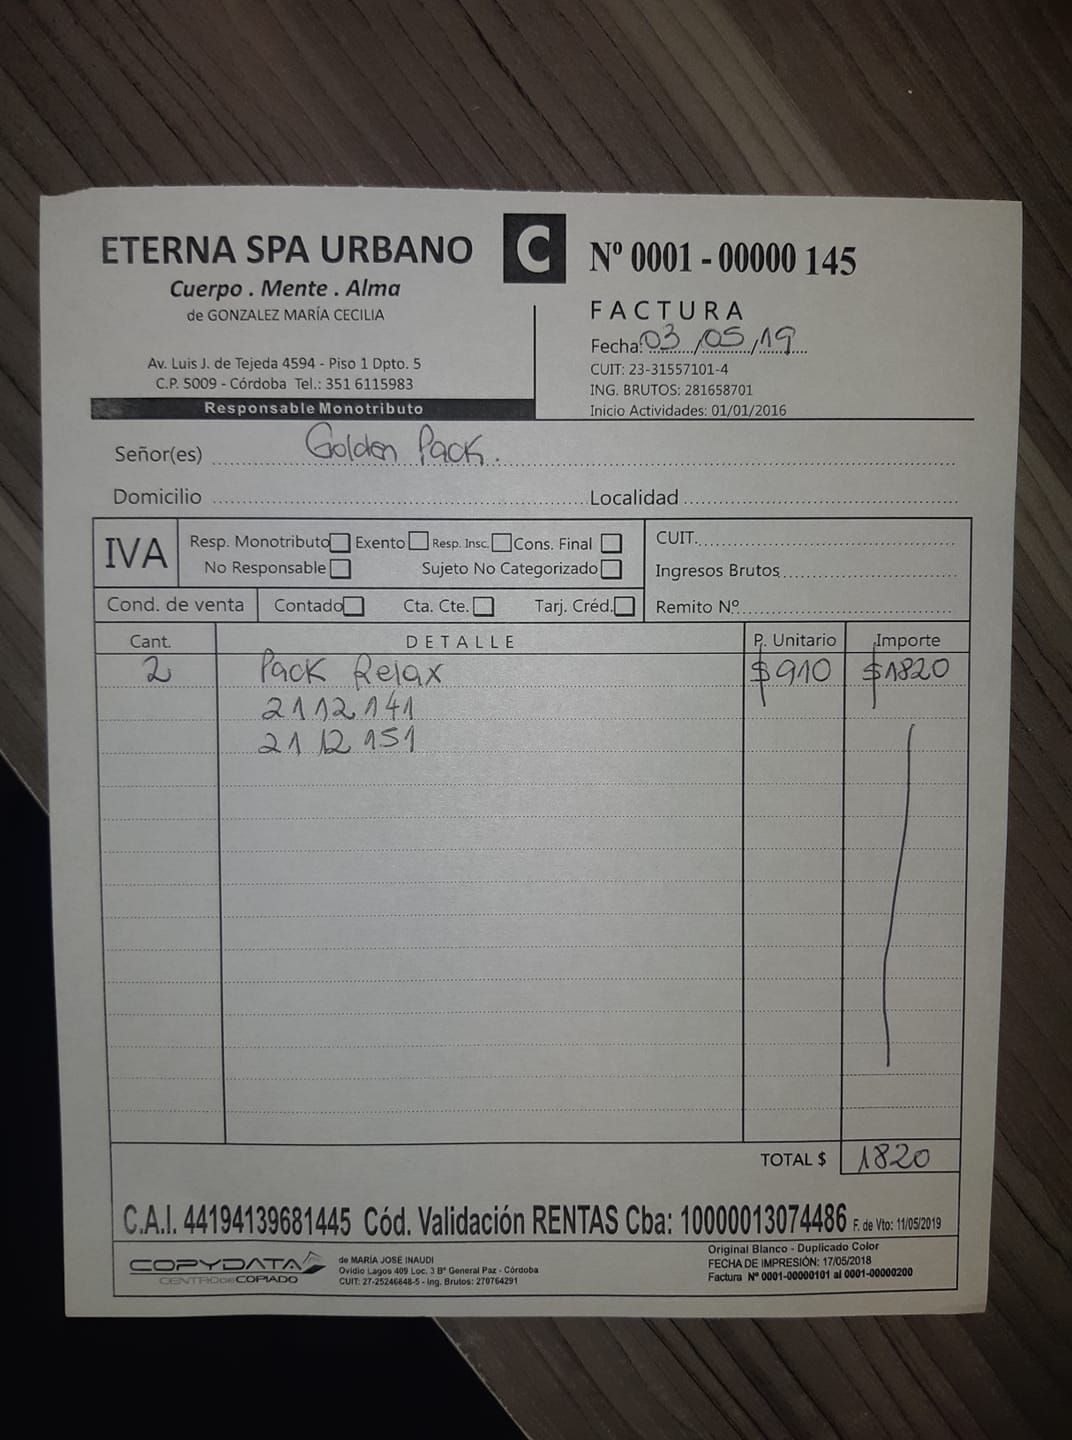 ETERNA SPA URBANO
Cuerpo . Mente . Alma
de GONZALEZ MARÍA CECILIA
Av. Luis J. de Tejeda 4594 - Piso 1 Dpto. 5
C.P. 5009 - Córdoba Tel.: 351 6115983
Responsable Monotributo
C
Nº 0001 - 00000 145
FACTURA
Fecha: 03/05/19
CUIT: 23-31557101-4
ING. BRUTOS: 281658701
Inicio Actividades: 01/01/2016
Señor(es) Golden Pack.
Domicilio Localidad
IVA
Resp. Monotributo Exento Resp. Insc. Cons. Final
No Responsable Sujeto No Categorizado
Cond. de venta Contado Cta. Cte. Tarj. Créd.
CUIT.
Ingresos Brutos
Remito Nº
Cant. DETALLE P. Unitario Importe
2 Pack Relax $910 $1820
2112141
2112151
TOTAL $ 1820
C.A.I. 44194139681445 Cód. Validación RENTAS Cba: 10000013074486 F. de Vto: 11/05/2019
COPYDATA
CENTRO DE COPIADO
de MARÍA JOSE INAUDI
Ovidio Lagos 409 Loc. 3 Bº General Paz - Córdoba
CUIT: 27-25246648-5 - Ing. Brutos: 270764291
Original Blanco - Duplicado Color
FECHA DE IMPRESIÓN: 17/05/2018
Factura Nº 0001-00000101 al 0001-00000200